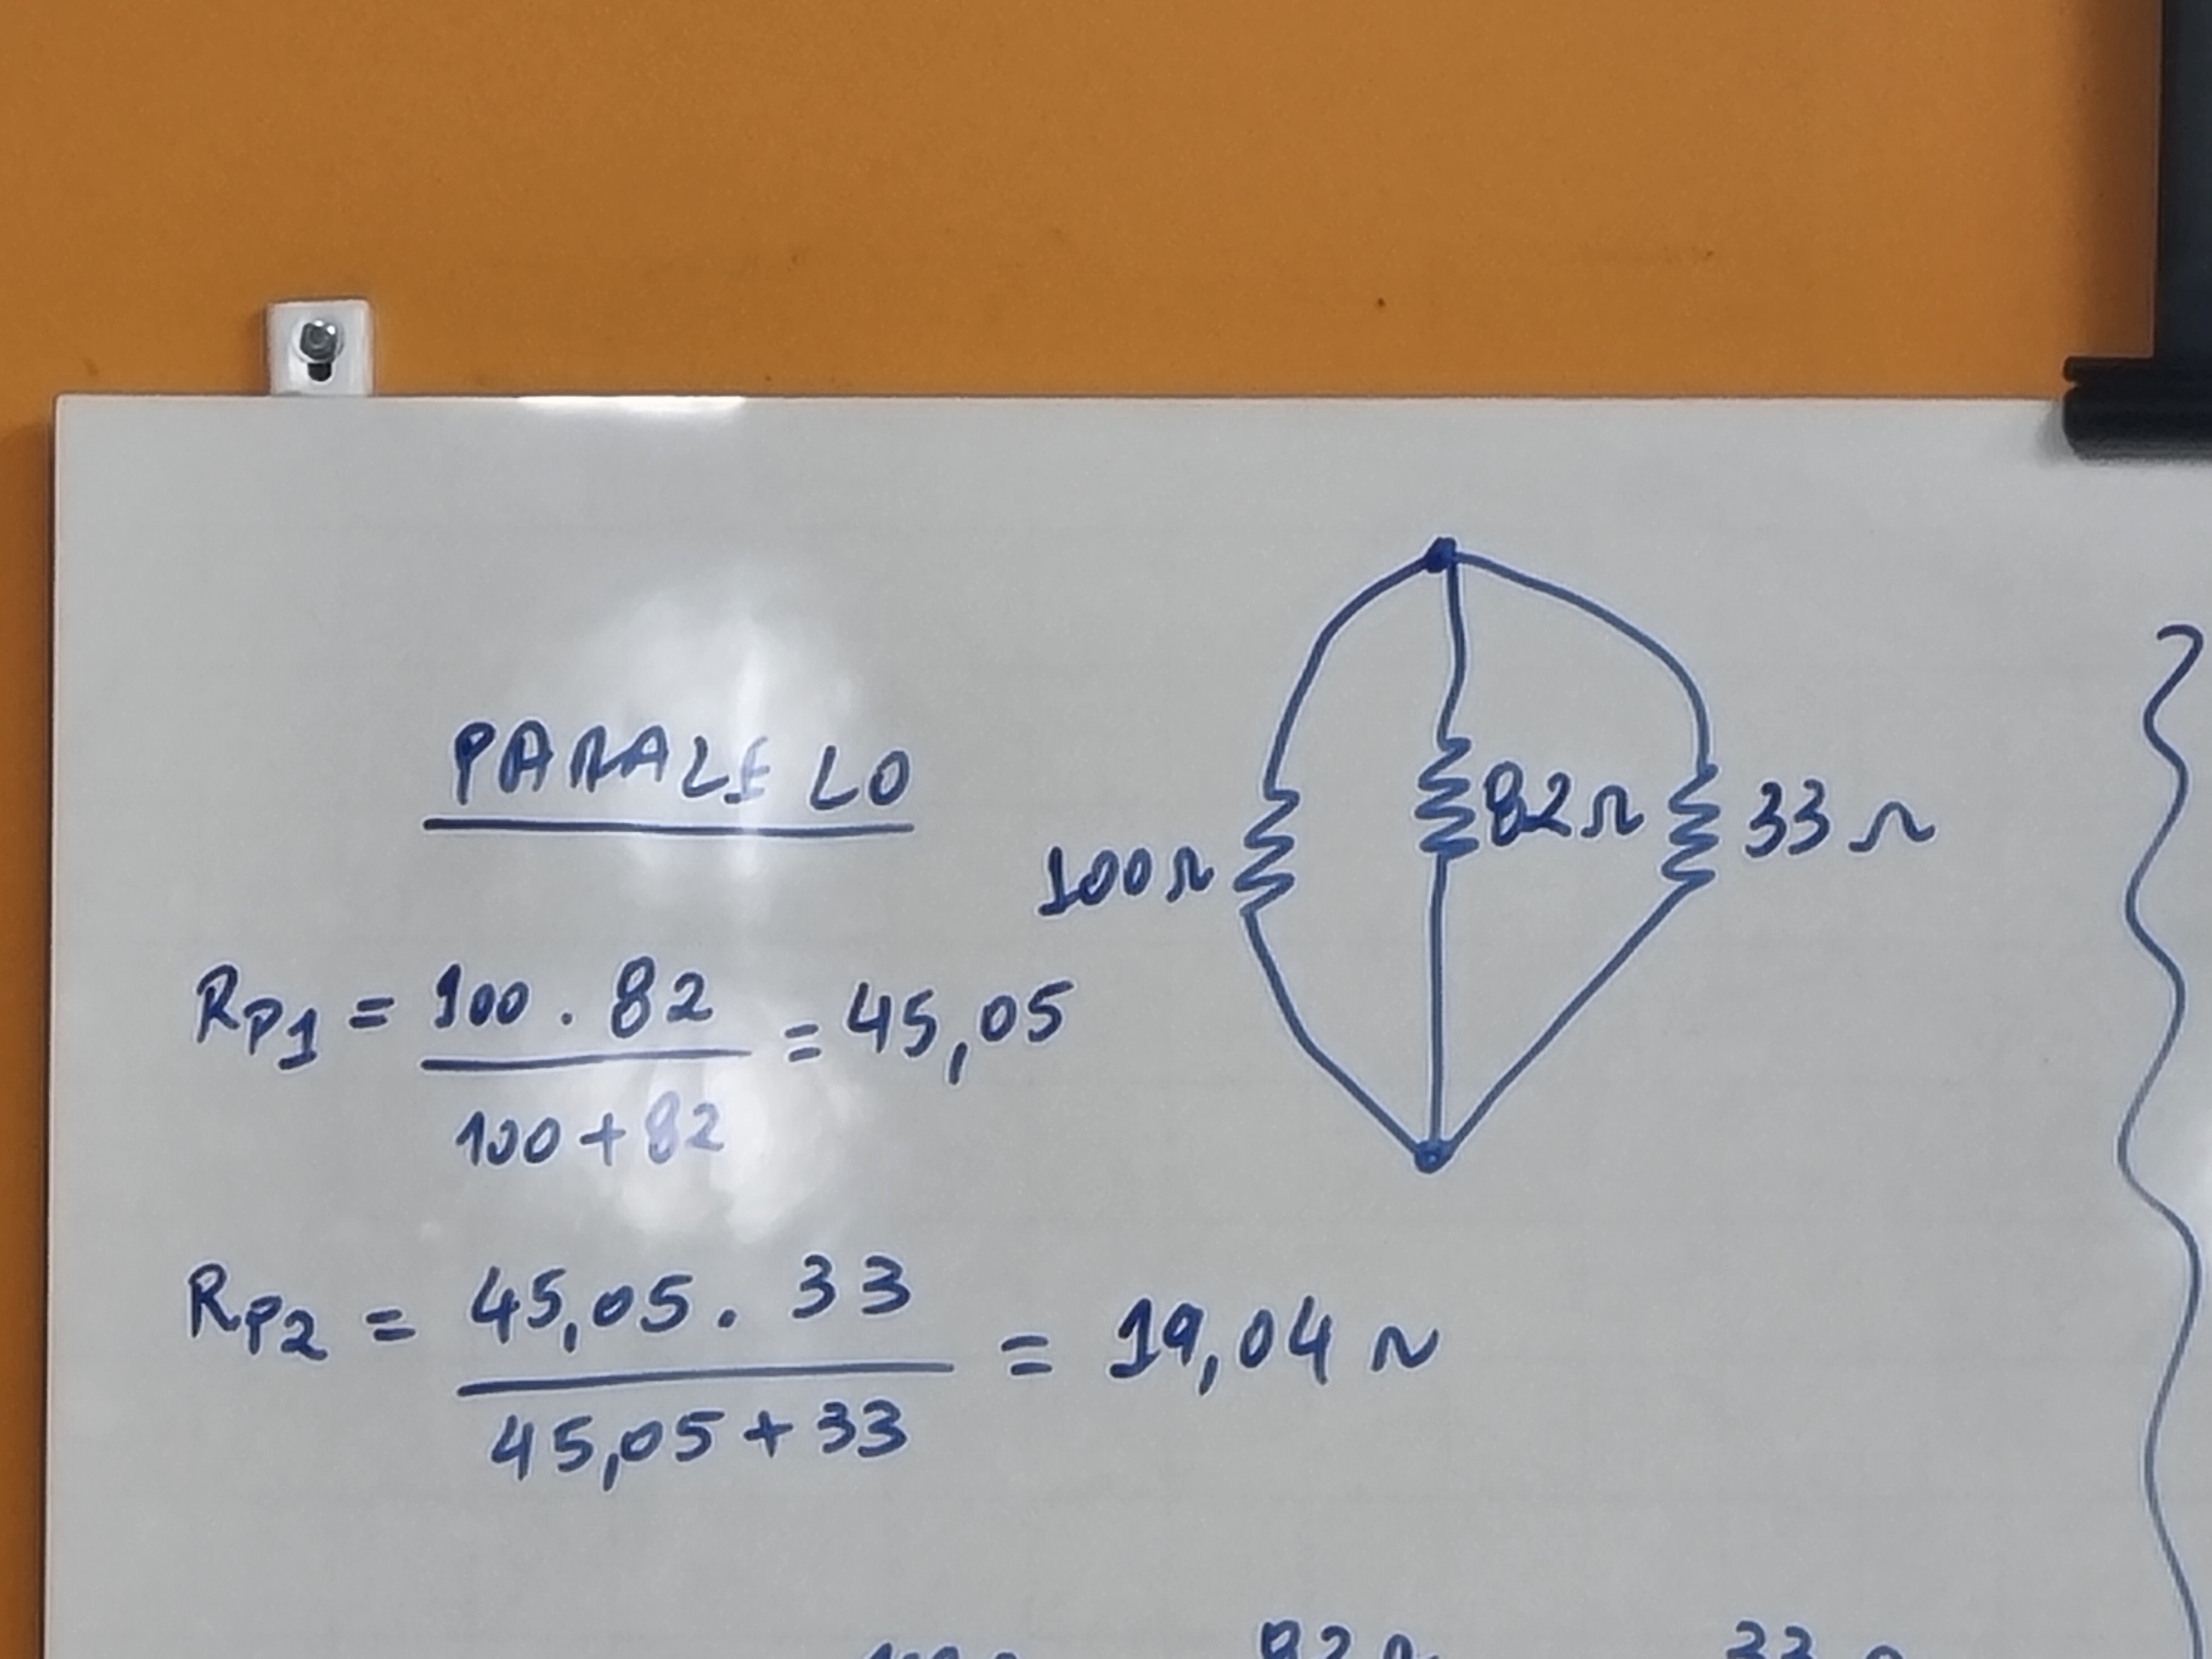 PARALELO
100Ω 82Ω 33Ω
RP1 = 100 . 82 / 100 + 82 = 45,05
RP2 = 45,05 . 33 / 45,05 + 33 = 19,04 Ω
82Ω 33Ω